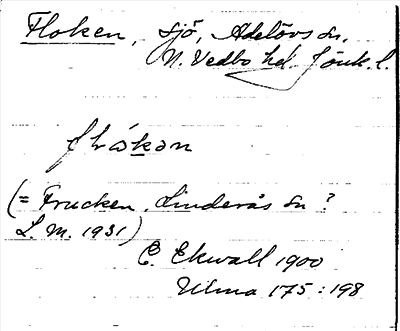 Floken, sjö, Adelövs sn,
N. Vedbo hd. Jönk. l.
flo̍kən
(= Frucken, Linderås sn ?
L. M. 1931)
E. Ekwall 1900
Ulma 175:198